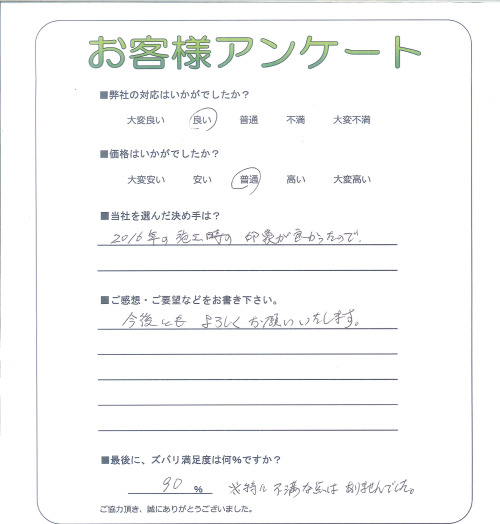 お客様アンケート
■弊社の対応はいかがでしたか？
大変良い 良い 普通 不満 大変不満
■価格はいかがでしたか？
大変安い 安い 普通 高い 大変高い
■当社を選んだ決め手は？
2016年の施工時の印象が良かったので。
■ご感想・ご要望などをお書き下さい。
今後とも よろしくお願いいたします。
■最後に、ズバリ満足度は何%ですか？
90 % ※特に不満な点はありませんでした。
ご協力頂き、誠にありがとうございました。